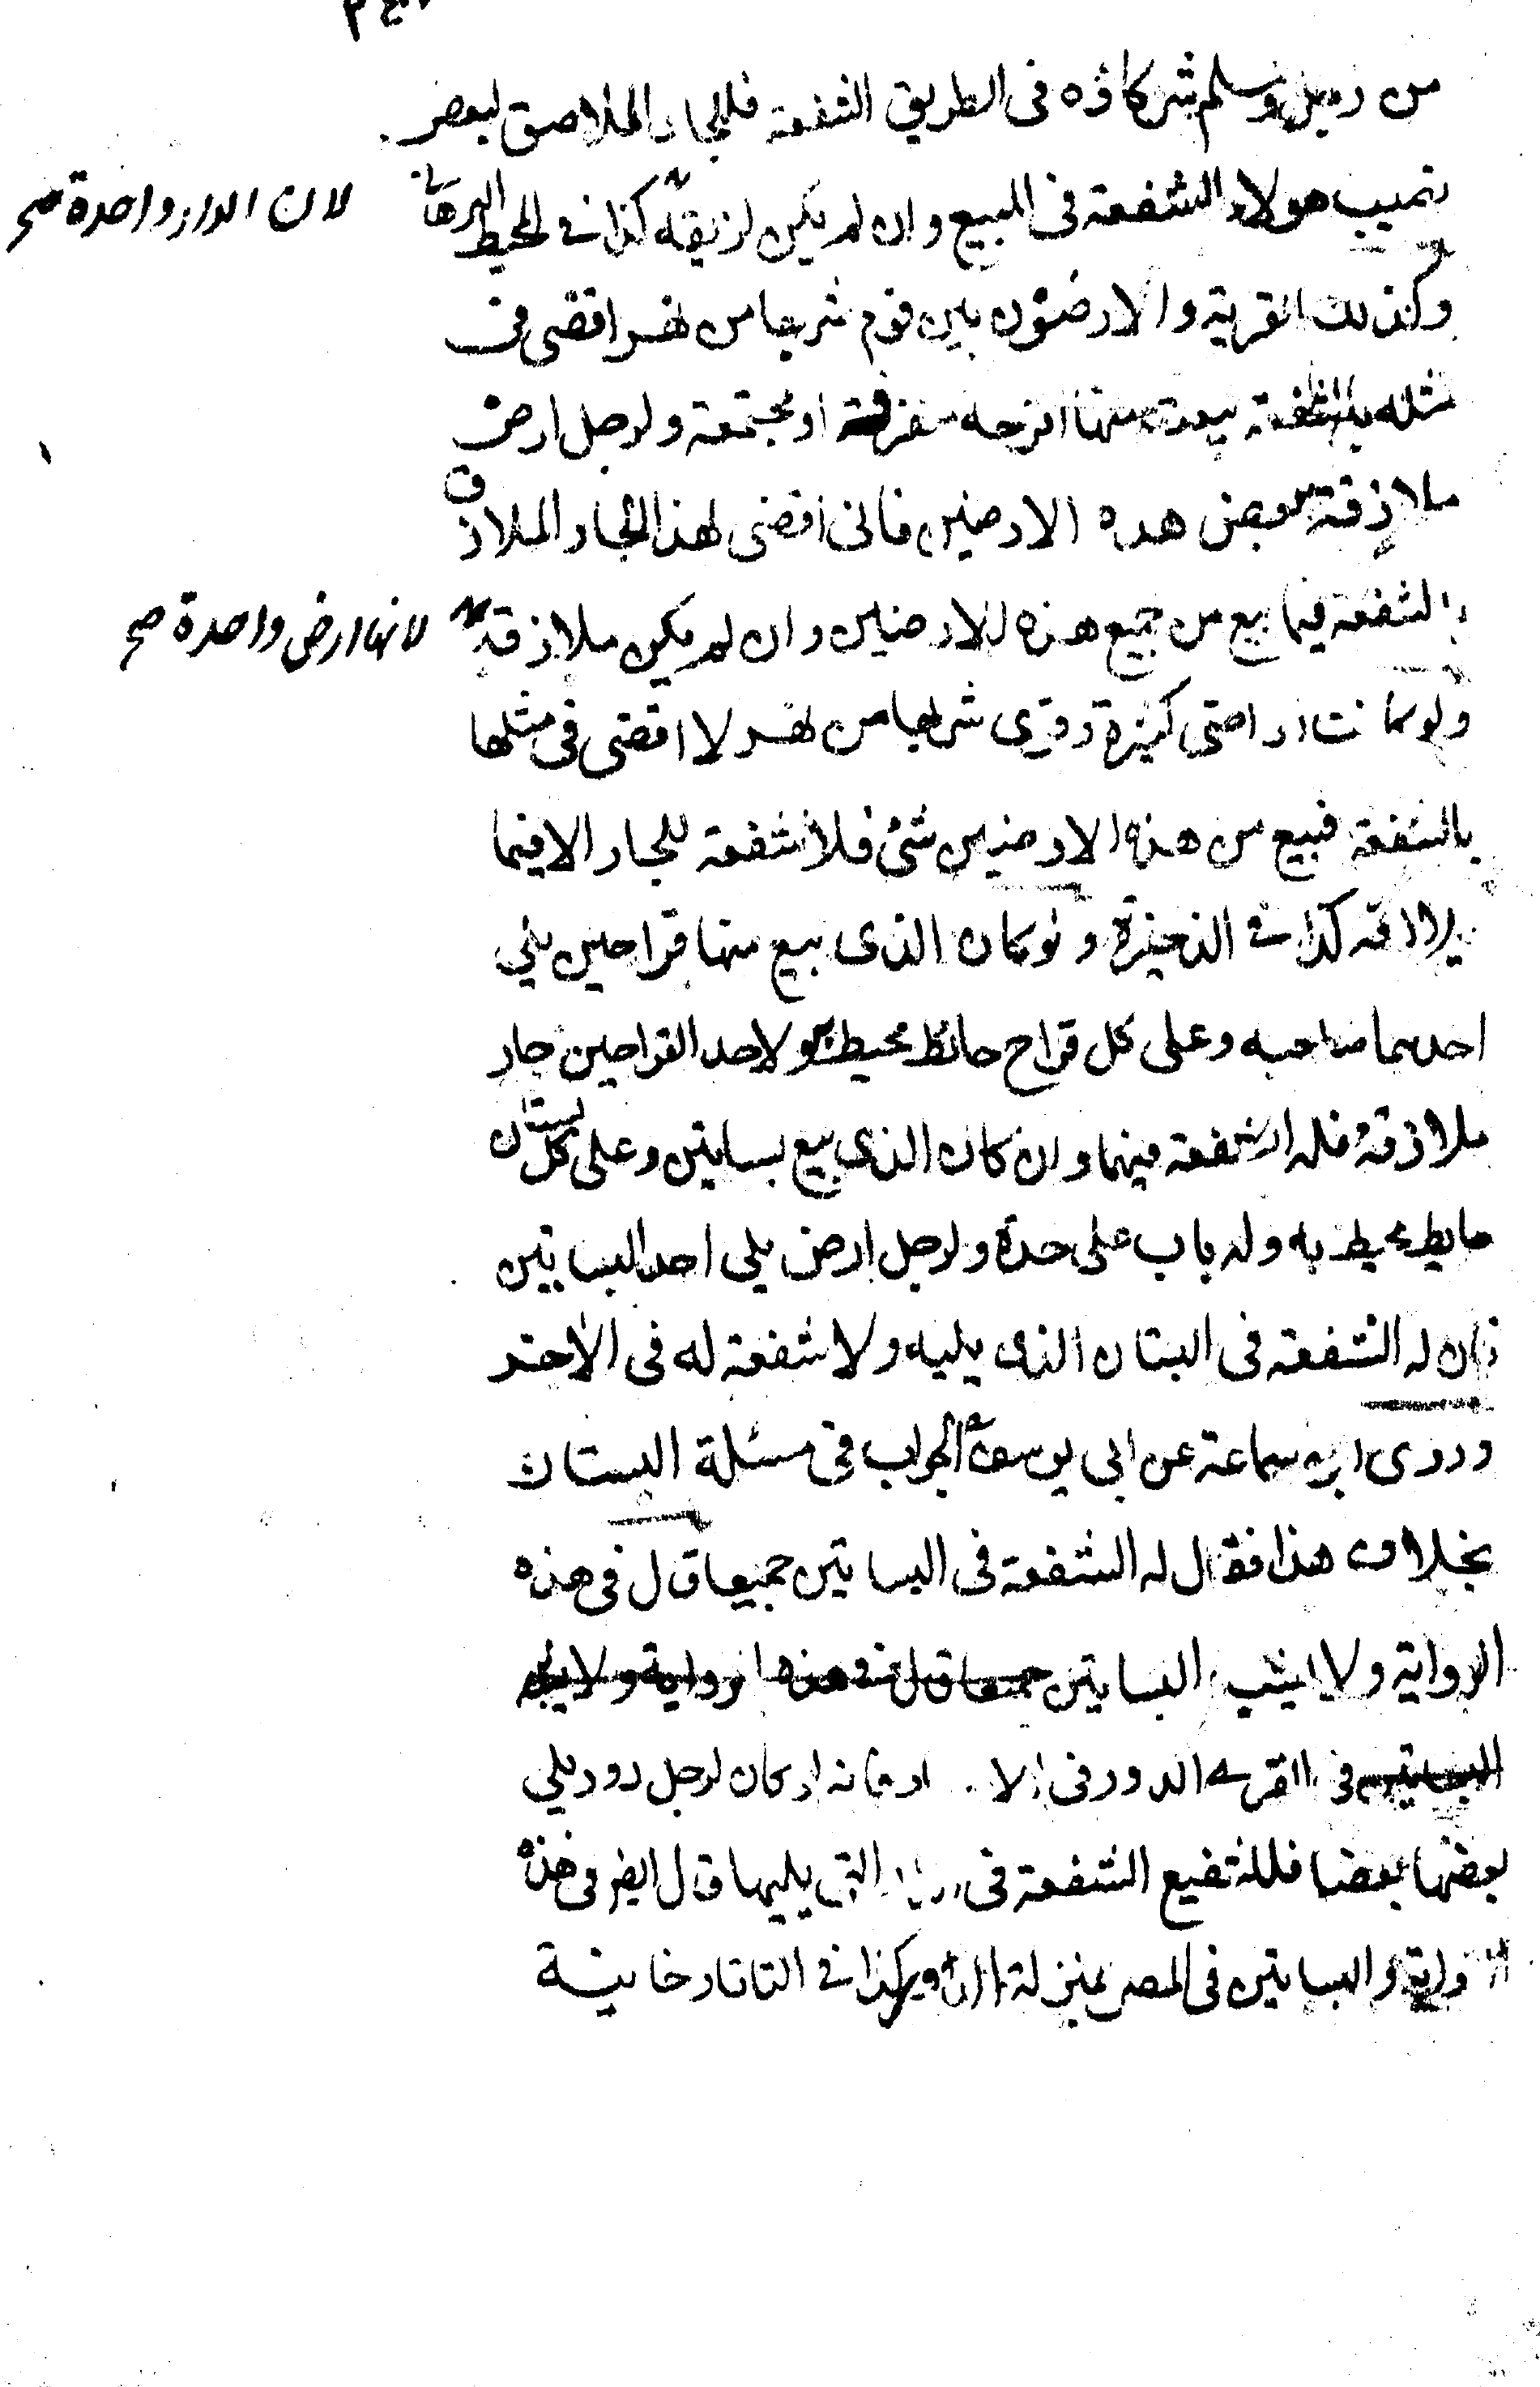 من رجل وسلم شركاؤه فى الطريق الشفعة فللجار الملاصق لبعض
نصيب هولاء الشفعة فى المبيع وان لم يكن لزيقه كذا فى المحيط البرهانى
لان الدار واحدة صح
وكذلك القرية والارضون بين قوم شربها من نهر اقضى فى
مثله بالشفعة بيعت منها اقرحه متفرقة او مجتمعة ولرجل ارض
ملازقة لبعض هذه الارضين فانى اقضى لهذا الجار الملازق
بالشفعة فيما بيع من جميع هذه الارضين وان لم يكن ملازقة
لانها ارض واحدة صح
ولو كانت اراضى كثيرة وقرى شربها من نهر لا اقضى فى مثلها
بالشفعة فبيع من هذه الارضين شئ فلا شفعة للجار الا فيما
يلازقه كذا فى الذخيرة ولو كان الذى بيع منها قراحين يلي
احدهما صاحبه وعلى كل قراح حائط محيط به ولاحد القراحين جار
ملازقة فله الشفعة فيهما وان كان الذى بيع بساتين وعلى كل بستان
حايط محيط به وله باب على حدة ولرجل ارض يلى احد البساتين
فان له الشفعة فى البستان الذى يليه ولا شفعة له فى الاخر
وروى ابن سماعة عن ابى يوسف الجواب فى مسئلة البستان
بخلاف هذا فقال له الشفعة فى البساتين جميعا قال فى هذه
الرواية ولا يشبه البساتين جميعا قال فى هذه الرواية ولا يشبه
البساتين فى القرية الدور فى الا لرجل دور يلي
بعضها بعضا فللشفيع الشفعة فى التى يليها قال ايضا فى هذه
الرواية والبساتين فى المصر بمنزلة الدور كذا فى التاتارخانية